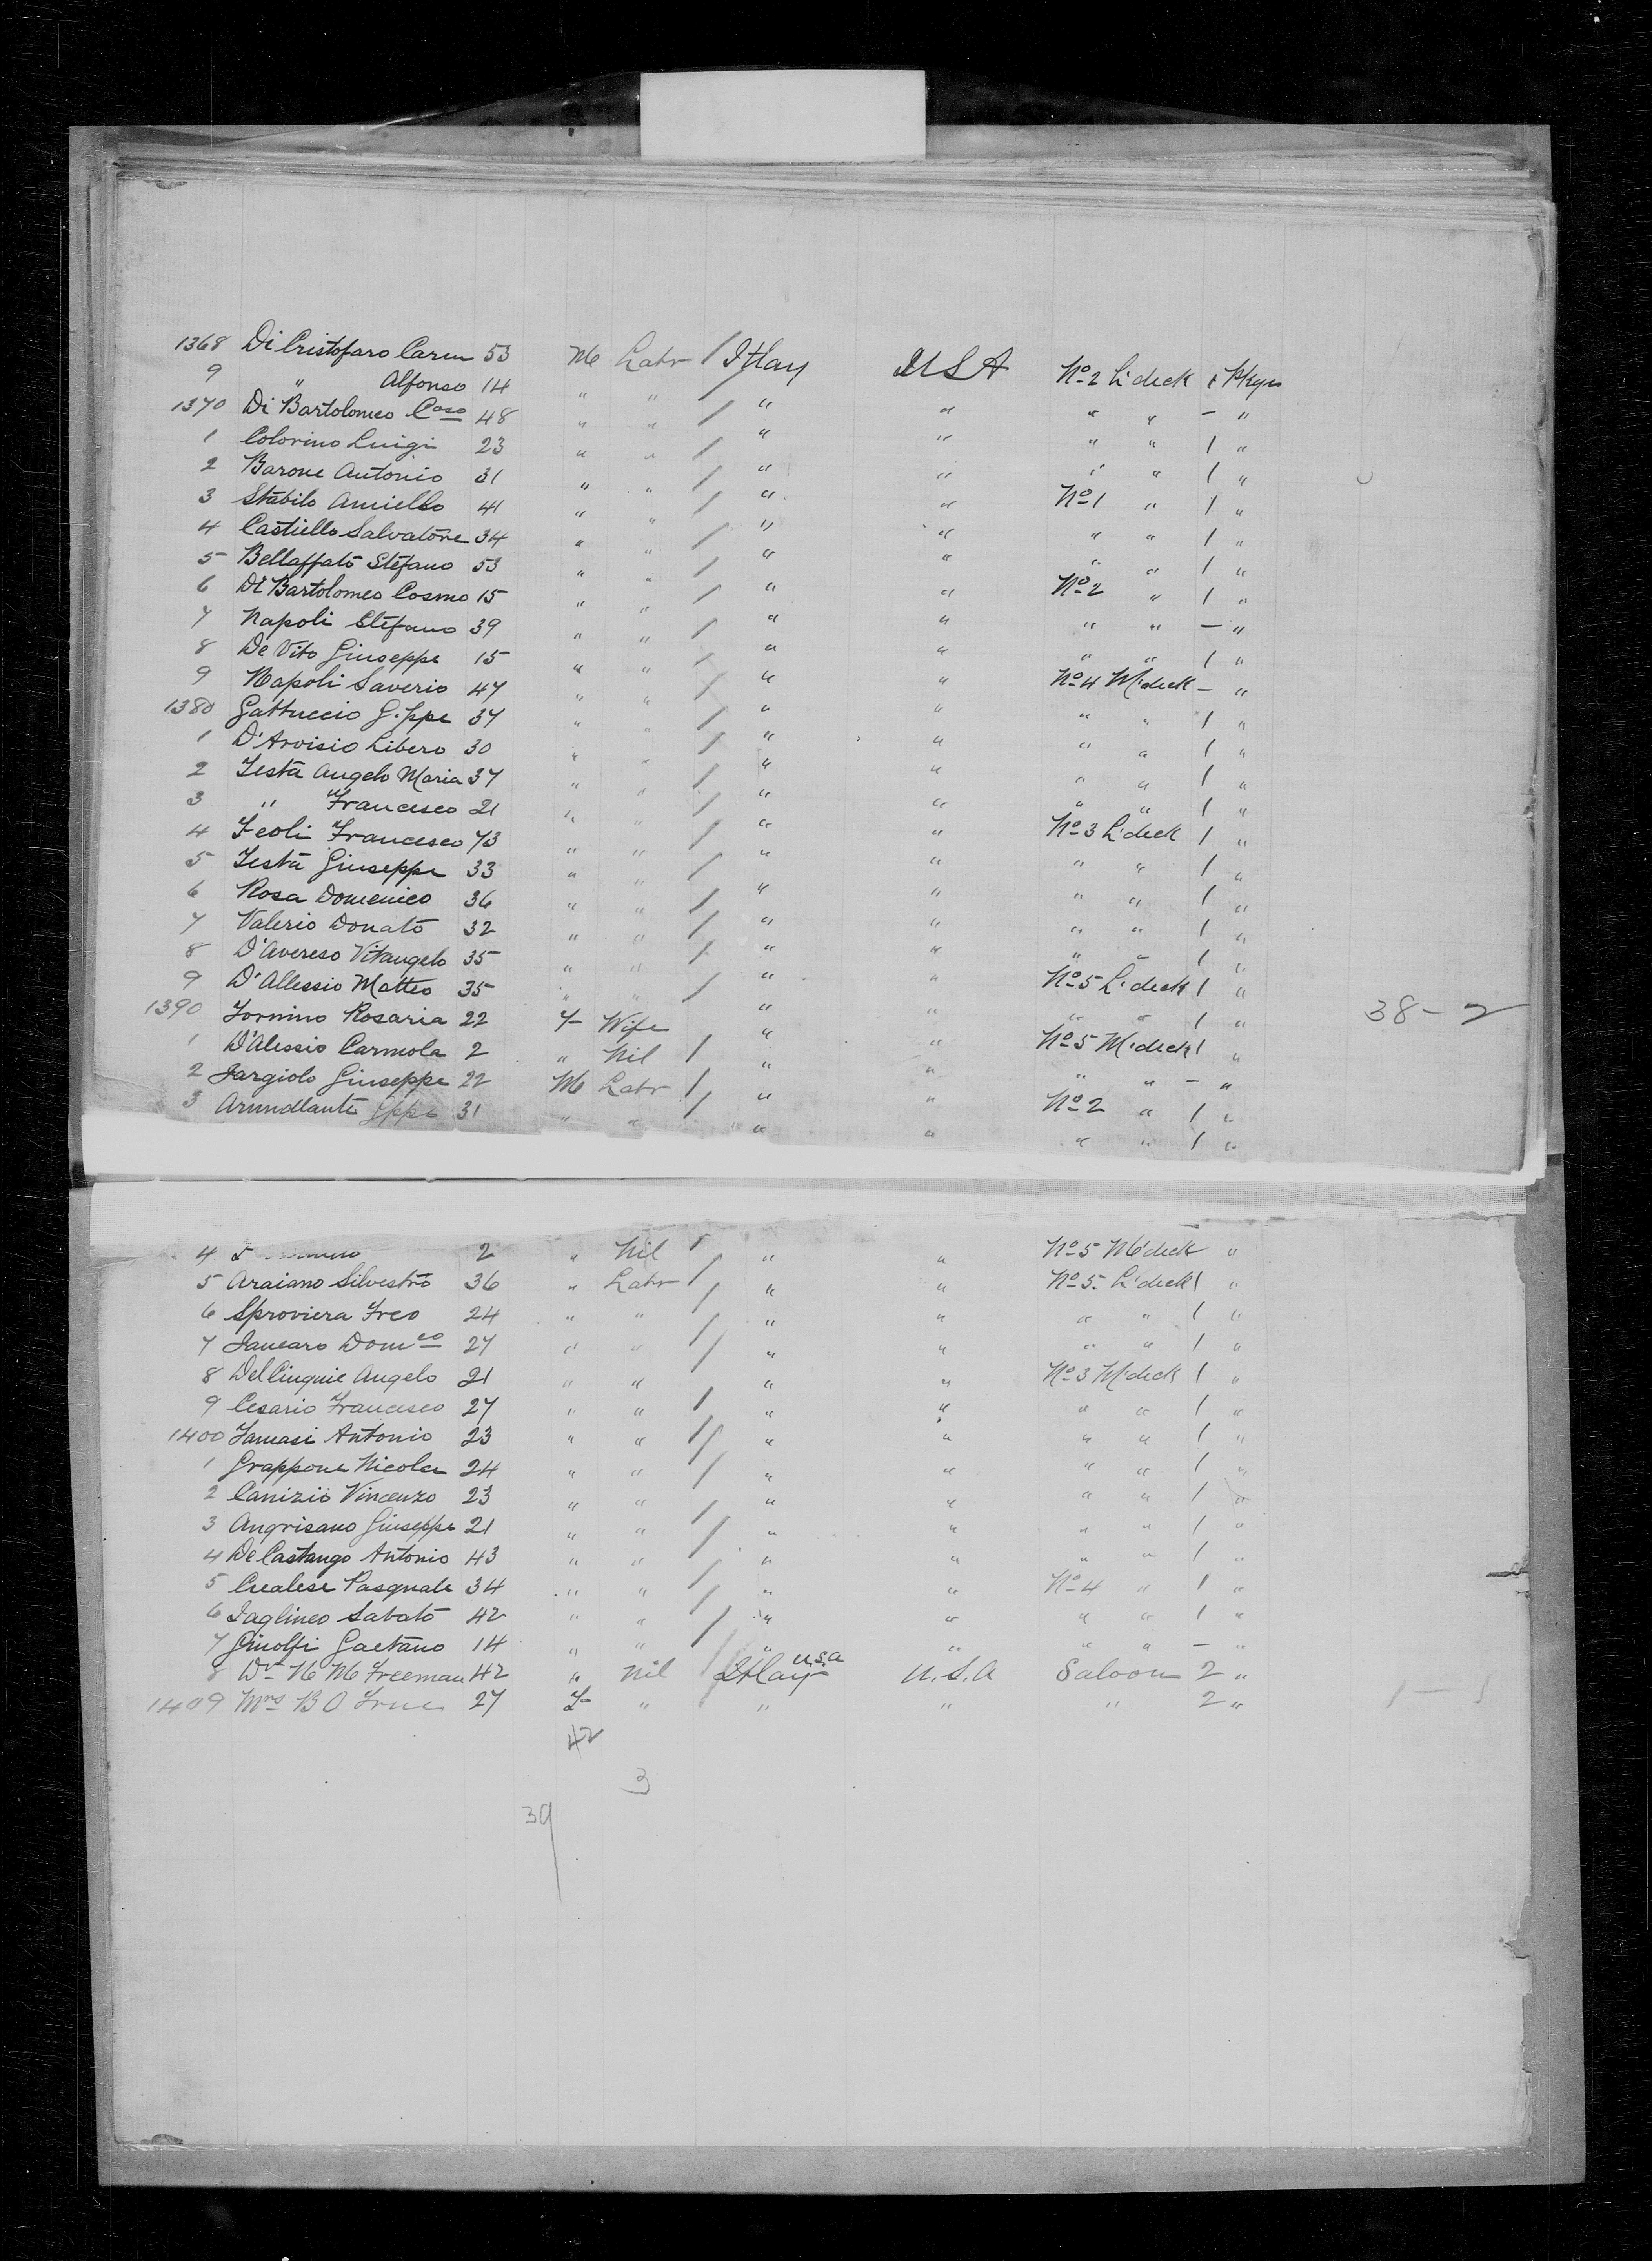 1368 Di Cristofaro Carm 53 M Labr / Itlay USA No 2 L'deck 1 Pkgs
9 " Alfonso 14 " " / " " " " - "
1370 Di Bartolomeo Coso 48 " " / " " " " 1 "
1 Colorino Luigi 23 " " / " " " " 1 "
2 Barone Antonio 31 " " / " " No 1 " 1 "
3 Stabilo Aniello 41 " " / " " " " 1 "
4 Castiello Salvatore 34 " " / " " " " 1 "
5 Bellaffato Stefano 53 " " / " " No 2 " 1 "
6 Di Bartolomeo Cosmo 15 " " / " " " " - "
7 Napoli Stefano 39 " " / " " " " 1 "
8 De Vito Giuseppe 15 " " / " " No 4 M'deck - "
9 Napoli Saverio 47 " " / " " " " 1 "
1380 Gattuccio G.ppe 37 " " / " " " " 1 "
1 D'Arvisio Libero 30 " " / " " " " 1 "
2 Testa Angelo Maria 37 " " / " " " " 1 "
3 " Francesco 21 " " / " " No 3 L'deck 1 "
4 Feoli Francesco 43 " " / " " " " 1 "
5 Testa Giuseppe 33 " " / " " " " 1 "
6 Rosa Domenico 36 " " / " " " " 1 "
7 Valerio Donato 32 " " / " " " " 1 "
8 D'Avereso Vitangelo 35 " " / " " No 5 L'deck 1 "
9 D'Allessio Matteo 35 " " / " " " " 1 " 38-2
1390 Fornino Rosaria 22 F Wife " " No 5 M'deck 1 "
1 D'Alessio Carmola 2 " Nil / " " " " - "
2 Jargiolo Giuseppe 22 M Labr / " " No 2 " 1 "
3 Arundlante Gppe 31 " " / " " " " 1 "
4 2 " Nil / " " No 5 M'deck "
5 Araiano Silvestro 36 " Labr / " " No 5 L'deck 1 "
6 Sproviera Freo 24 " " / " " " " 1 "
7 Jancaro Domco 27 " " / " " " " 1 "
8 Del Cinquie Angelo 21 " " / " " No 3 M'deck 1 "
9 Cesario Francesco 27 " " / " " " " 1 "
1400 Famasi Antonio 23 " " / " " " " 1 "
1 Grappone Nicola 24 " " / " " " " 1 "
2 Canizio Vincenzo 23 " " / " " " " 1 "
3 Angrisano Giuseppe 21 " " / " " " " 1 "
4 De Castango Antonio 43 " " / " " " " 1 "
5 Crealese Pasquale 34 " " / " " No 4 " 1 "
6 Taglineo Sabato 42 " " / " " " " 1 "
7 Ginolfi Gaetano 14 " " / " " " " - "
8 Dr N M Freeman 42 " Nil / Itlay U.S.A U.S.A Saloon 2 "
1409 Mrs B O True 27 F " " " " 2 " 1-1
42
3
39